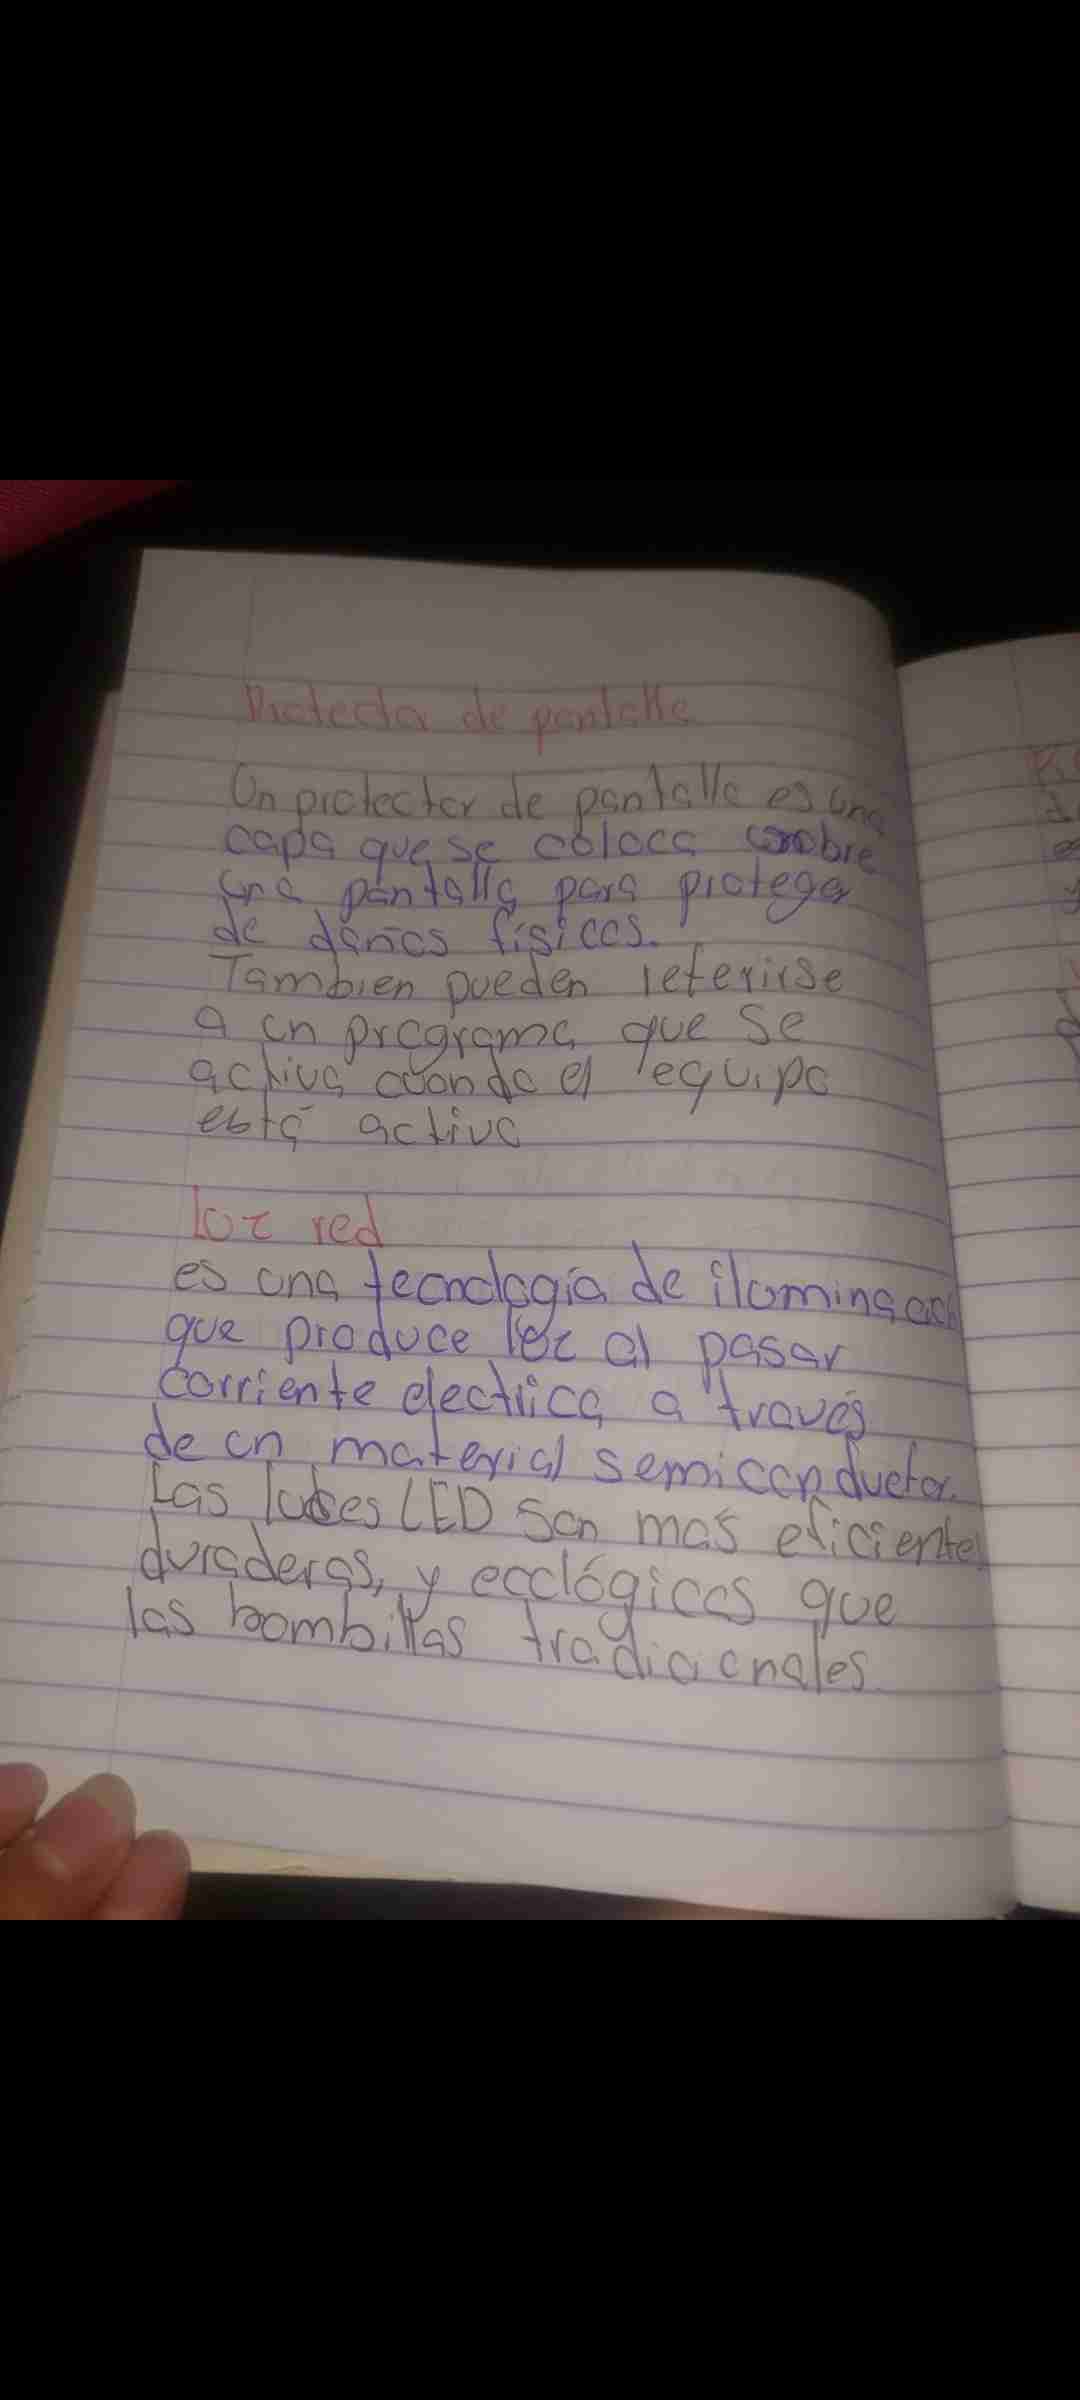 Protector de pantalla
Un protector de pantalla es una
capa que se coloca sobre
una pantalla para proteger
de daños físicos.
Tambien pueden referirse
a un programa que se
activa cuando el equipo
está activo
luz red
es una tecnología de iluminación
que produce luz al pasar
corriente electrica a través
de un material semiconductor.
Las luces LED son mas eficientes
duraderas, y ecológicas que
las bombillas tradicionales.